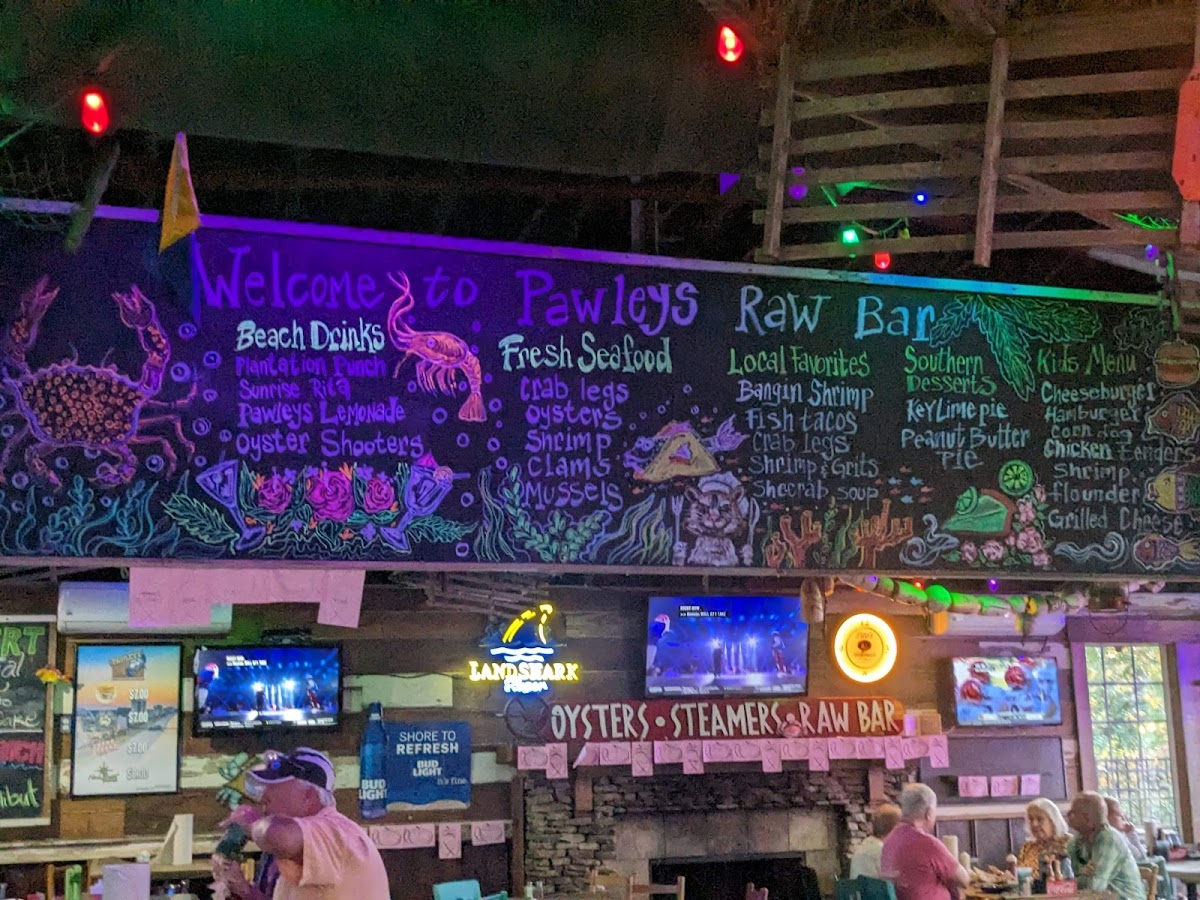 Welcome to Pawleys Raw Bar
Beach Drinks
Plantation Punch
Sunrise Rita
Pawleys Lemonade
Oyster Shooters
Fresh Seafood
Crab legs
Oysters
Shrimp
Clams
Mussels
Local Favorites
Bangin Shrimp
Fish tacos
Crab legs
Shrimp & Grits
Shecrab soup
Southern
Desserts
Key Lime pie
Peanut Butter
PIE
Kids Menu
Cheeseburger
Hamburger
Corn dog
Chicken tenders
Shrimp
flounder
Grilled Cheese
LANDSHARK
OYSTERS • STEAMERS • RAW BAR
SHORE TO
REFRESH
BUD
LIGHT
it's fine.
BUD
LIGHT
$2.00
$2.00